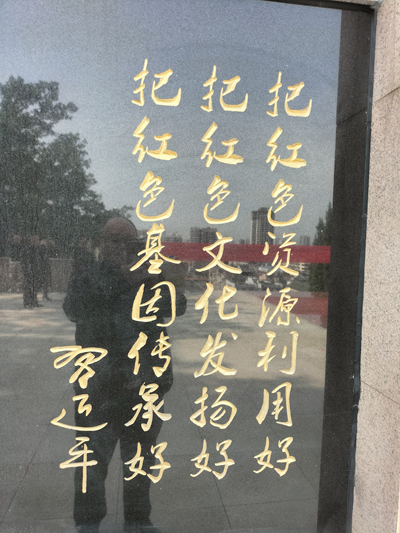 把红色资源利用好
把红色文化发扬好
把红色基因传承好
习近平